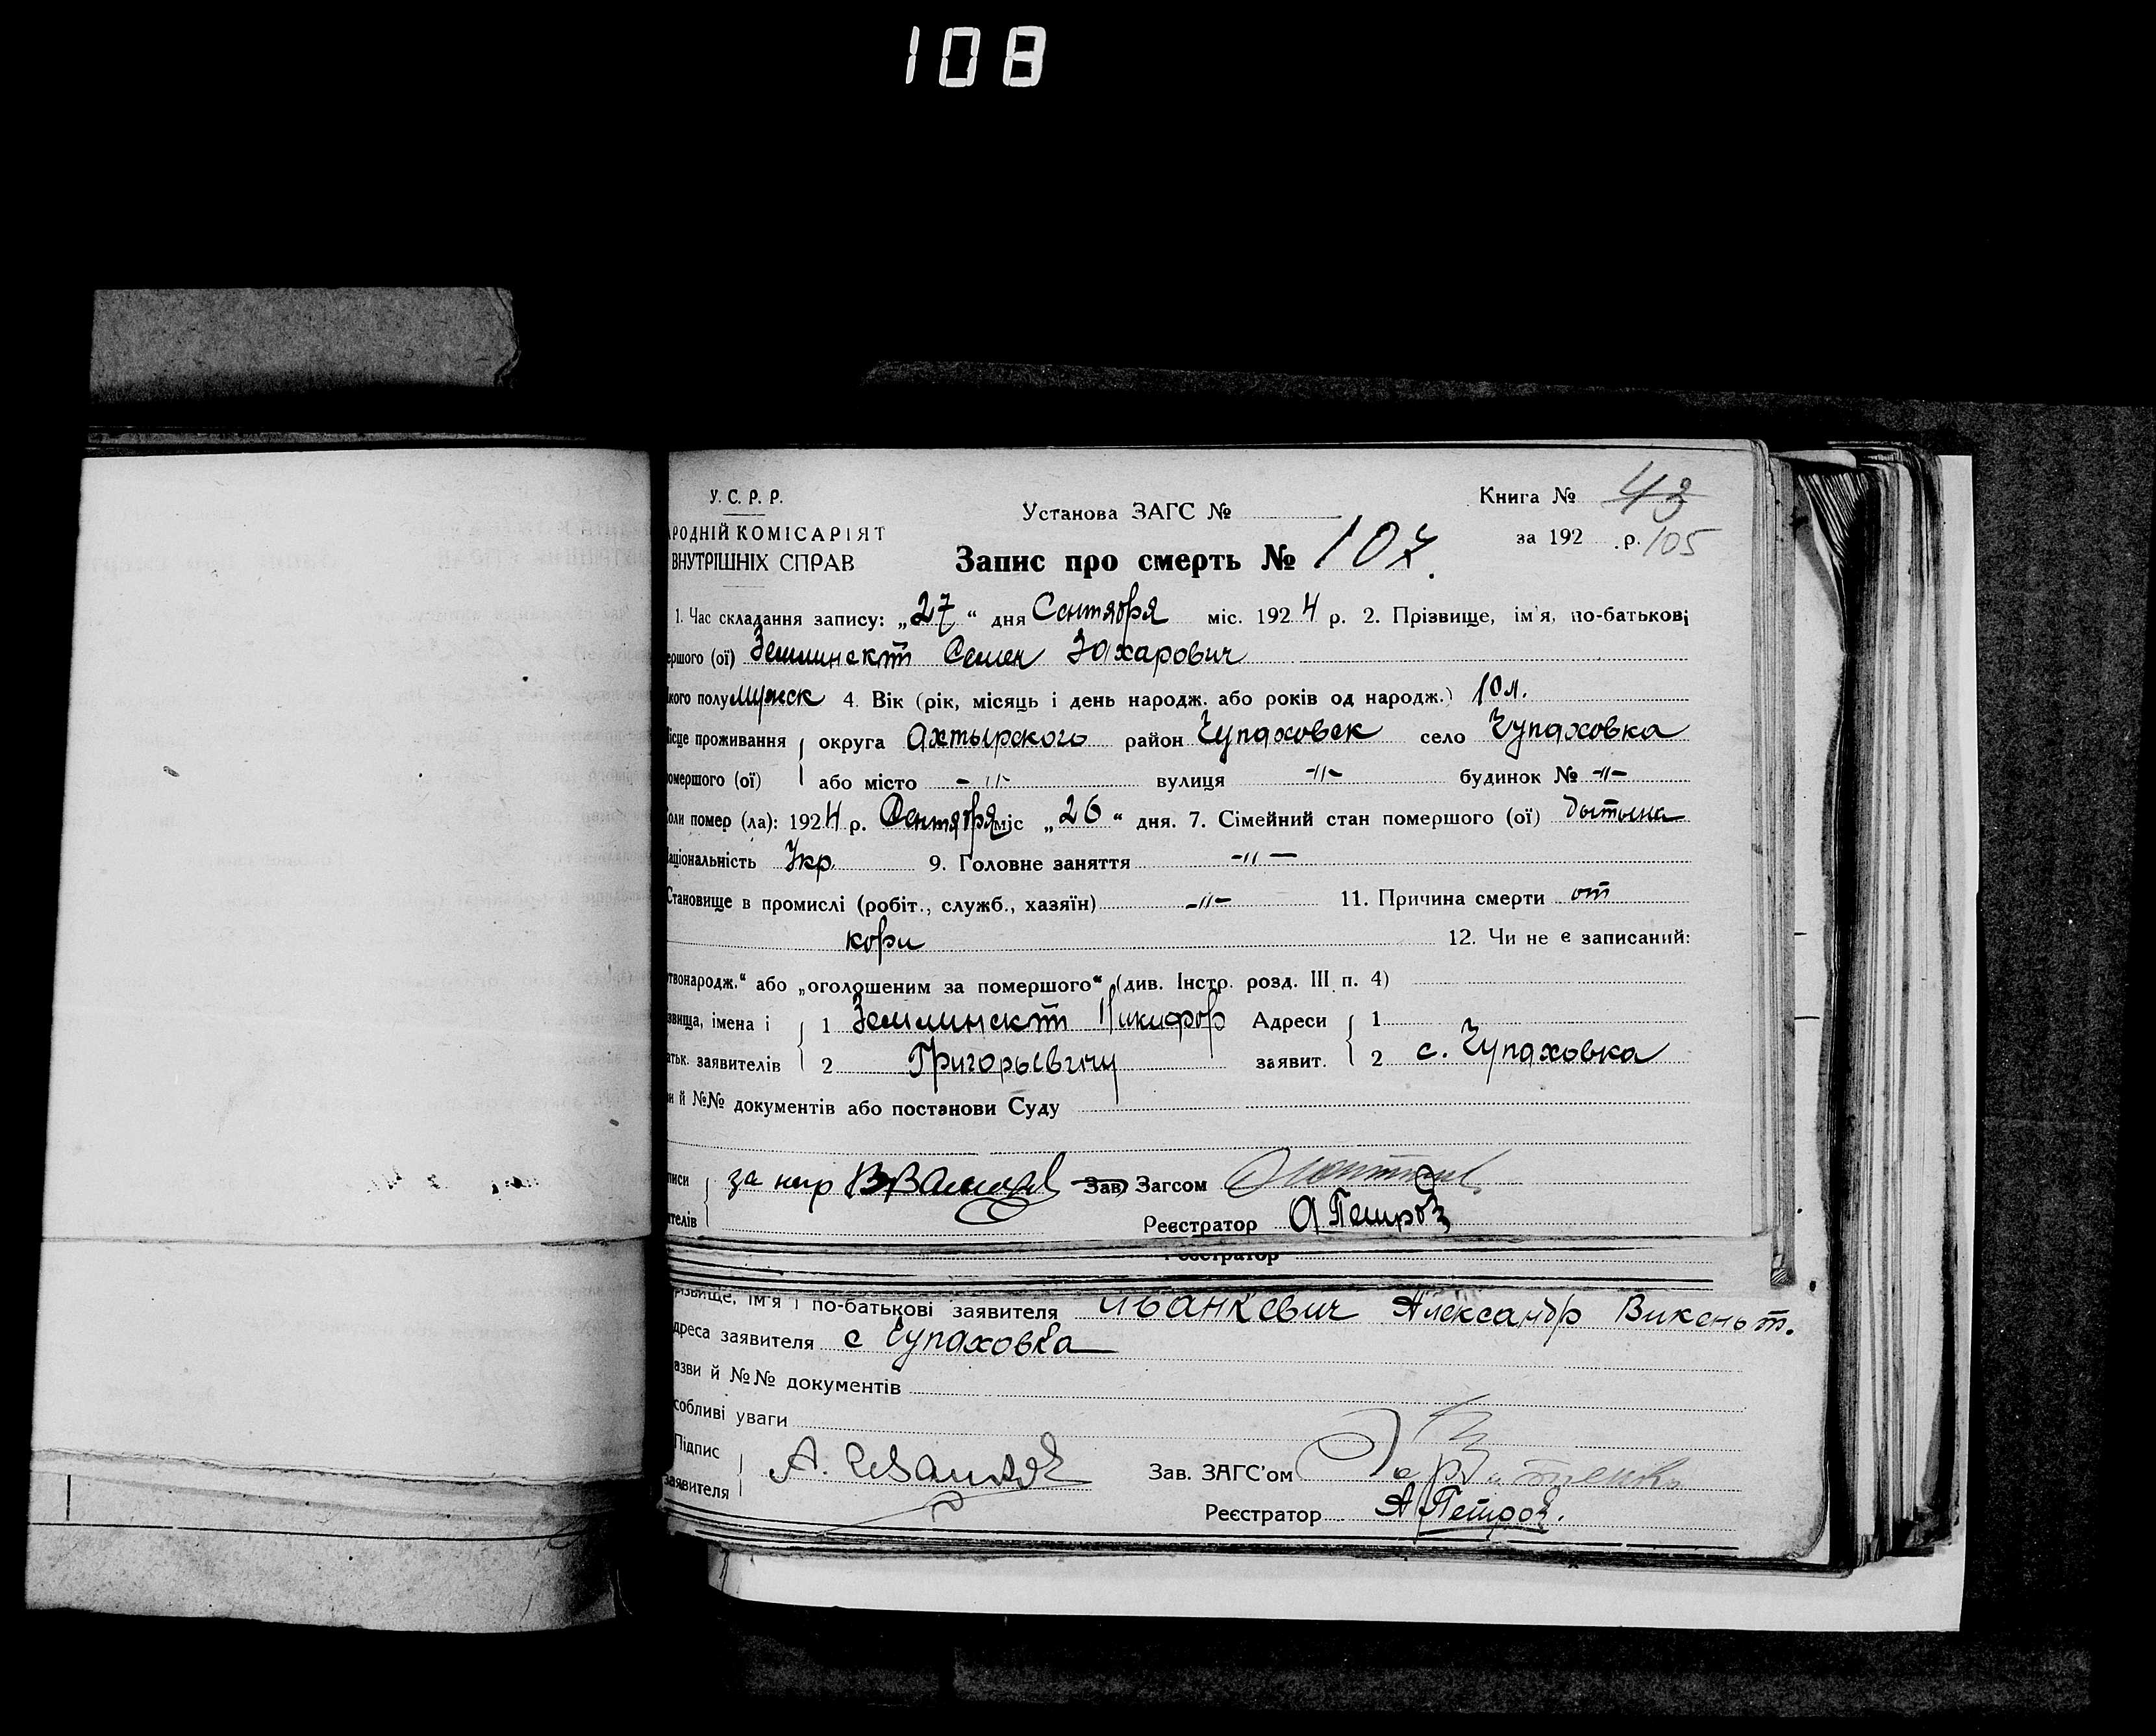 108
У. С. Р. Р.
РОДНІЙ КОМІСАРІЯТ
ВНУТРІШНІХ СПРАВ
Установа ЗАГС №
Книга № 43
за 192 р. 105
Запис про смерть № 107.
1. Час складання запису: „27“ дня Сентября міс. 1924 р. 2. Прізвище, ім'я, по-батькові
ершого (ої) Семен Захарович
кого полу мужск 4. Вік (рік, місяць і день народж. або років од народж.) 10 л.
ісце проживання округа Ахтырского район Чупаховск село Чупаховка
омершого (ої) або місто -"- вулиця -"- будинок № -"-
оли помер (ла): 1924 р. Сентября міс „26“ дня. 7. Сімейний стан помершого (ої) дытына
аціональність Укр. 9. Головне заняття -"-
Становище в промислі (робіт., служб., хазяїн) -"- 11. Причина смерти от
кори 12. Чи не є записаний:
твонародж.“ або „оголошеним за помершого“ (див. Інстр. розд. III п. 4)
звища, імена і 1 Никифор Адреси 1
атьк. заявителів 2 Григорьевичу заявит. 2 с. Чупаховка
и й №№ документів або постанови Суду
писи за нир Зав. Загсом
ителів Реєстратор А Петров
Реєстратор
різвище, ім'я і по-батькові заявителя Иванкевич Александр Викеньт.
дреса заявителя с Чупаховка
азви й №№ документів
собливі уваги
Підпис
заявителя А. Зав. ЗАГС'ом
Реєстратор А Петров.